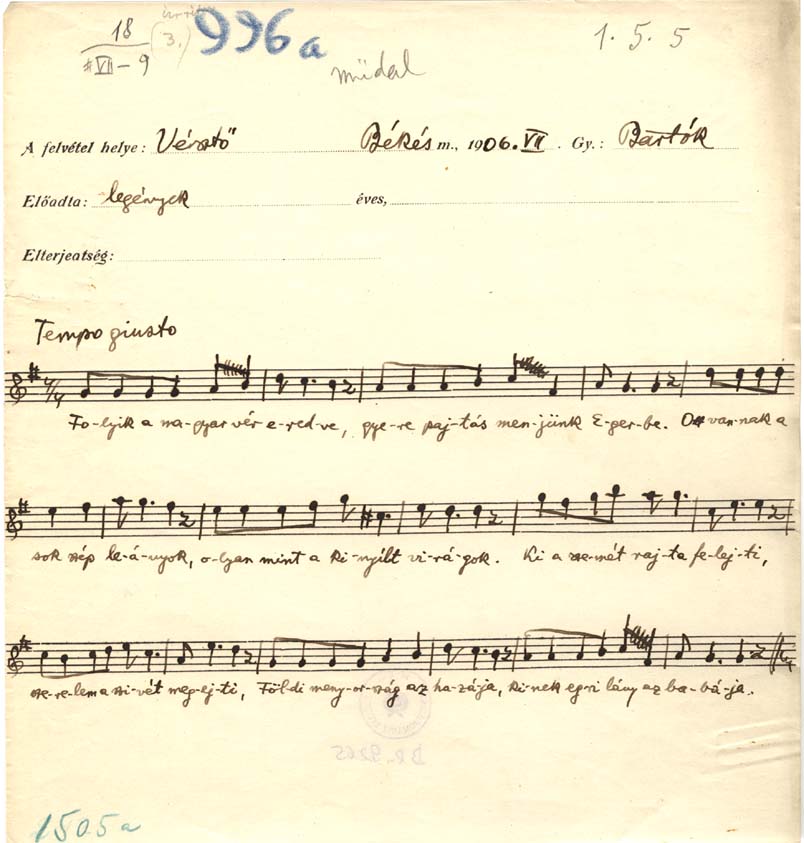 18
VII-9
3.
996a
1.5.5
műdal
A felvétel helye: Vésztő Békés m., 1906.VII. Gy.: Bartók
Előadta: legények éves,
Elterjeatség:
Tempo giusto
Fo-lyik a ma-gyar vér e-red-ve, gye-re paj-tás men-jünk E-ger-be. Ot van-nak a
sok szép le-á-nyok, o-lyan mint a ki-nyílt vi-rá-gok. Ki a sze-mét raj-ta fe-lej-ti,
sze-re-lem a szi-vét meg-ej-ti, Föl-di meny-or-szág az ha-zája, ki-nek eg-ri lány az ba-bá-ja.
1505a